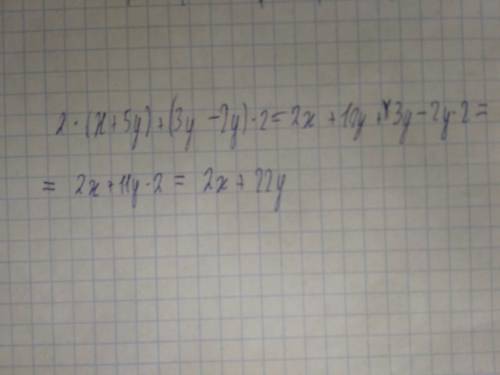 2·(x+5y)+(3y-2y)·2=2x+10y+3y-2y·2=
=2x+11y·2=2x+22y